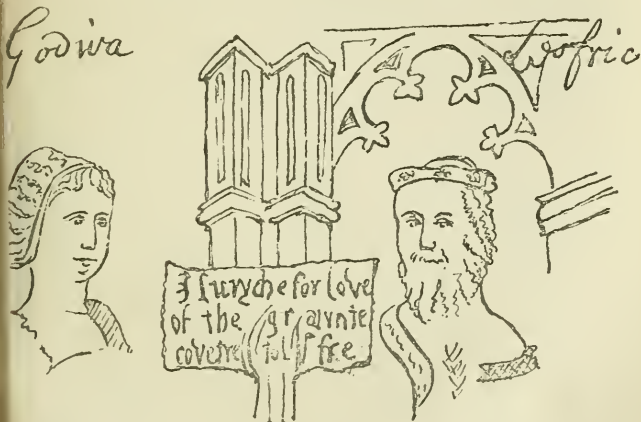 Godiva
Leofric
I luryche for love
of the
covetre tol fre